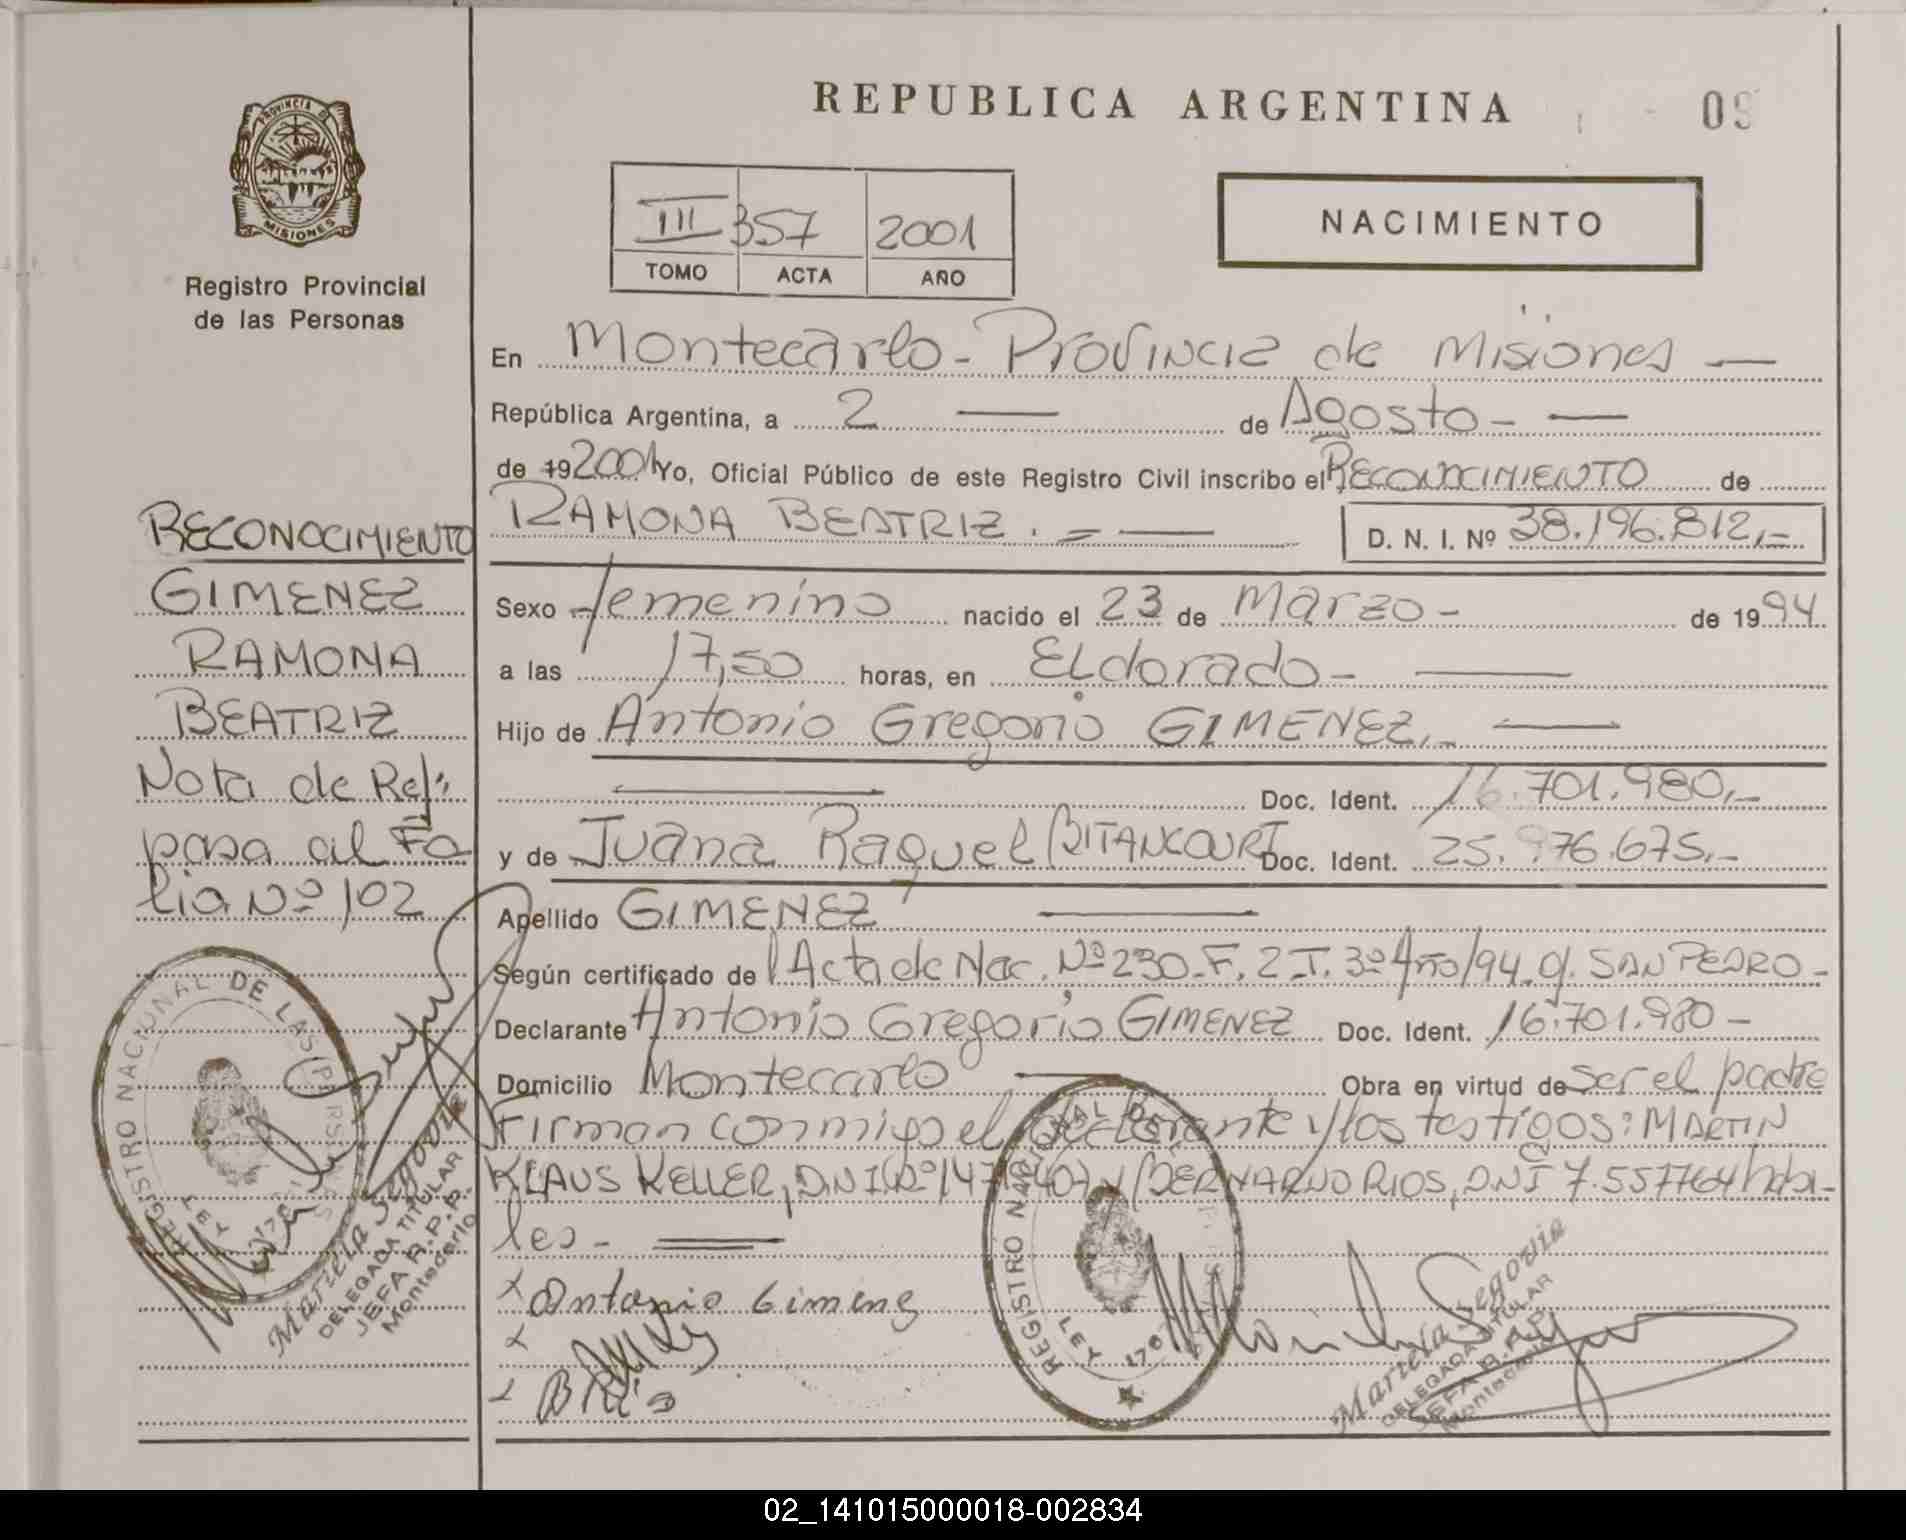 REPUBLICA ARGENTINA
09
PROVINCIA DE
MISIONES
Registro Provincial
de las Personas
III 357 2001
TOMO ACTA AÑO
NACIMIENTO
En Montecarlo - Provincia de Misiones —
República Argentina, a 2 — de Agosto - —
de 192001 Yo, Oficial Público de este Registro Civil inscribo el RECONOCIMIENTO de
RAMONA BEATRIZ . = —
D. N. I. Nº 38.196.812,=
Sexo femenino nacido el 23 de Marzo - de 1994
a las 17,50 horas, en ELdorado - —
Hijo de Antonio Gregorio GIMENEZ,- —
— Doc. Ident. 16.701.980,-
y de Juana Raquel BITANCOURT Doc. Ident. 25.976.675.-
Apellido GIMENEZ —
Según certificado de l Acta de Nac. Nº 230-F. 2-T. 3º Año/94. SAN PEDRO -
Declarante Antonio Gregorio GIMENEZ Doc. Ident. 16.701.980 -
Domicilio Montecarlo — Obra en virtud de ser el padre
Firman conmigo el declarante y los testigos: MARTIN
KLAUS KELLER, DNI Nº y BERNARDO RIOS, DNI 7.557764 habi-
les - =
x Antonio Gimenez
x
x B Rios
RECONOCIMIENTO
GIMENEZ
RAMONA
BEATRIZ
Nota de Ref:
pasa al Fo
lio Nº 102
REGISTRO NACIONAL DE LAS PERSONAS
LEY
Mariela Segovia
DELEGADA TITULAR
JEFA R.P.P.
Montecarlo
REGISTRO NACIONAL DE
LEY
Mariela Segovia
DELEGADA TITULAR
JEFA R.P.P.
Montecarlo
02_141015000018-002834